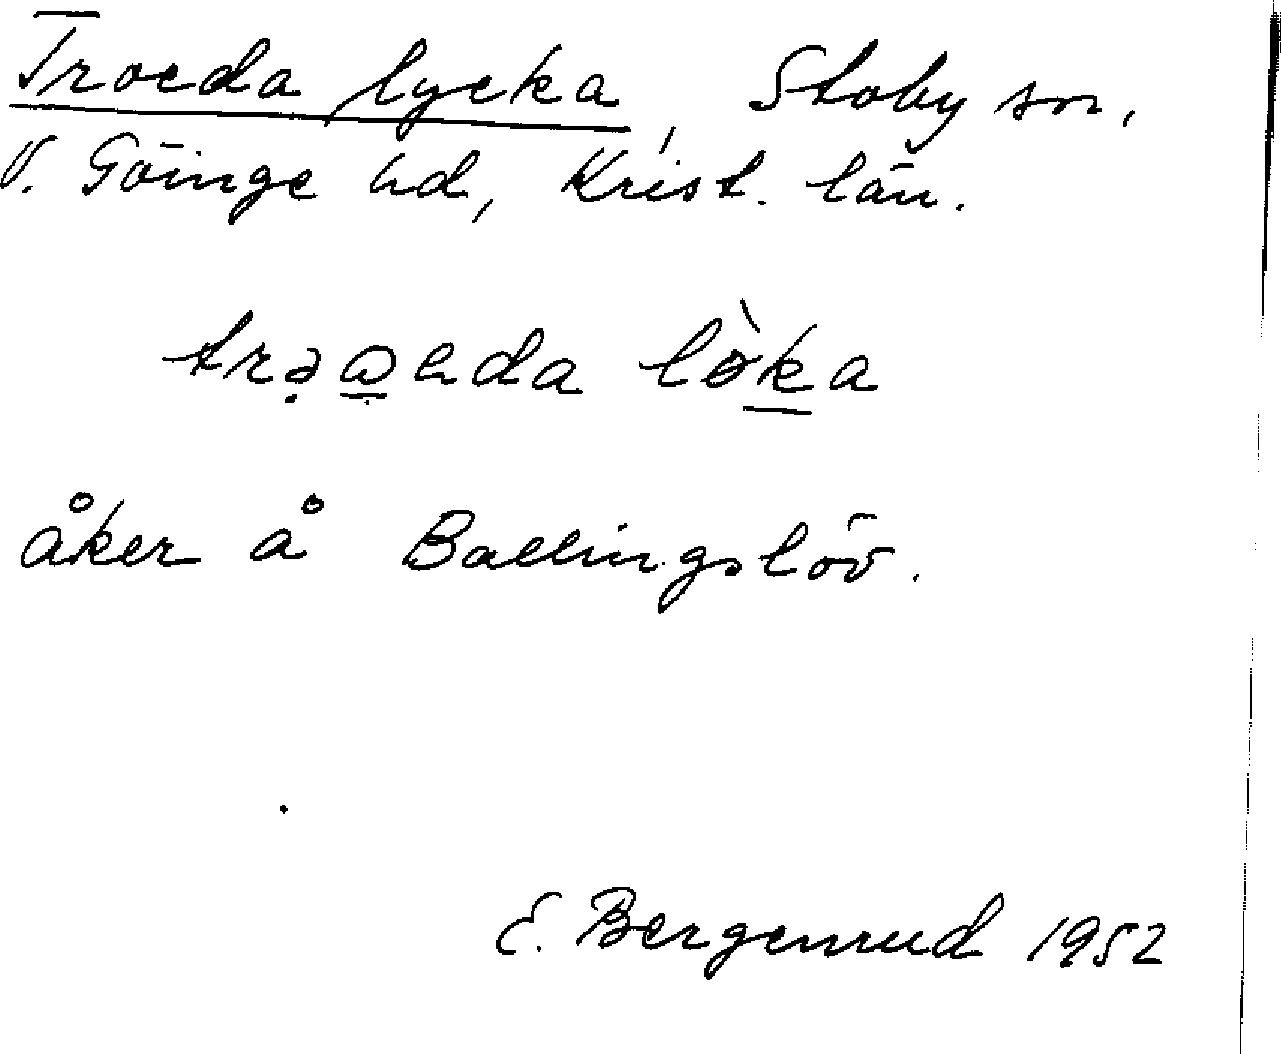 Troeda lycka, Stoby sn,
V. Göinge hd, Krist. län.
lo̊ka
åker å Ballingslöv.
E. Bergenrud 1952